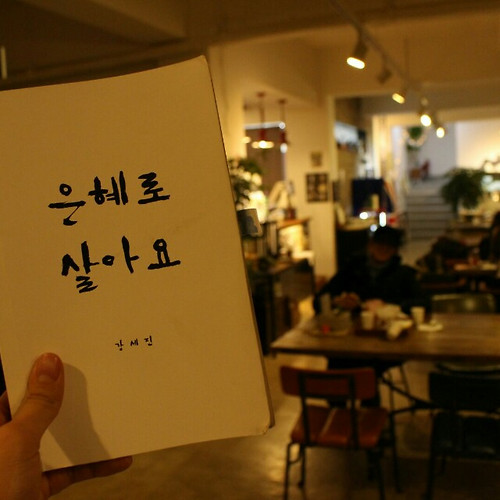 은혜로
살아요
강세진